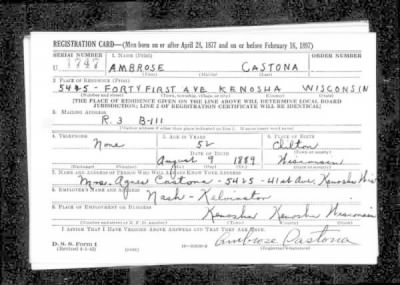 REGISTRATION CARD—(Men born on or after April 28, 1877 and on or before February 16, 1897)
SERIAL NUMBER 1. NAME (Print) ORDER NUMBER
U 1747 AMBROSE CASTONA
(First) (Middle) (Last)
2. PLACE OF RESIDENCE (Print)
5425 - FORTY FIRST AVE KENOSHA WISCONSIN
(Number and street) (Town, township, village, or city) (County) (State)
[THE PLACE OF RESIDENCE GIVEN ON THE LINE ABOVE WILL DETERMINE LOCAL BOARD
JURISDICTION; LINE 2 OF REGISTRATION CERTIFICATE WILL BE IDENTICAL]
3. MAILING ADDRESS
R. 3 B-111
[Mailing address if other than place indicated on line 2. If same insert word same]
4. TELEPHONE 5. AGE IN YEARS 6. PLACE OF BIRTH
None 52 Chilton
DATE OF BIRTH (Town or county)
August 9 1889 Wisconsin
(Exchange) (Number) (Mo.) (Day) (Yr.) (State or country)
7. NAME AND ADDRESS OF PERSON WHO WILL ALWAYS KNOW YOUR ADDRESS
Mrs. Agnes Castona - 5425 - 41st Ave. Kenosha Wis
8. EMPLOYER'S NAME AND ADDRESS
Nash - Kelvinator
9. PLACE OF EMPLOYMENT OR BUSINESS
Kenosha Kenosha Wisconsin
(Number and street or R. F. D. number) (Town) (County) (State)
I AFFIRM THAT I HAVE VERIFIED ABOVE ANSWERS AND THAT THEY ARE TRUE.
D. S. S. Form 1
(Revised 4-1-42) (over)
Ambrose Castona